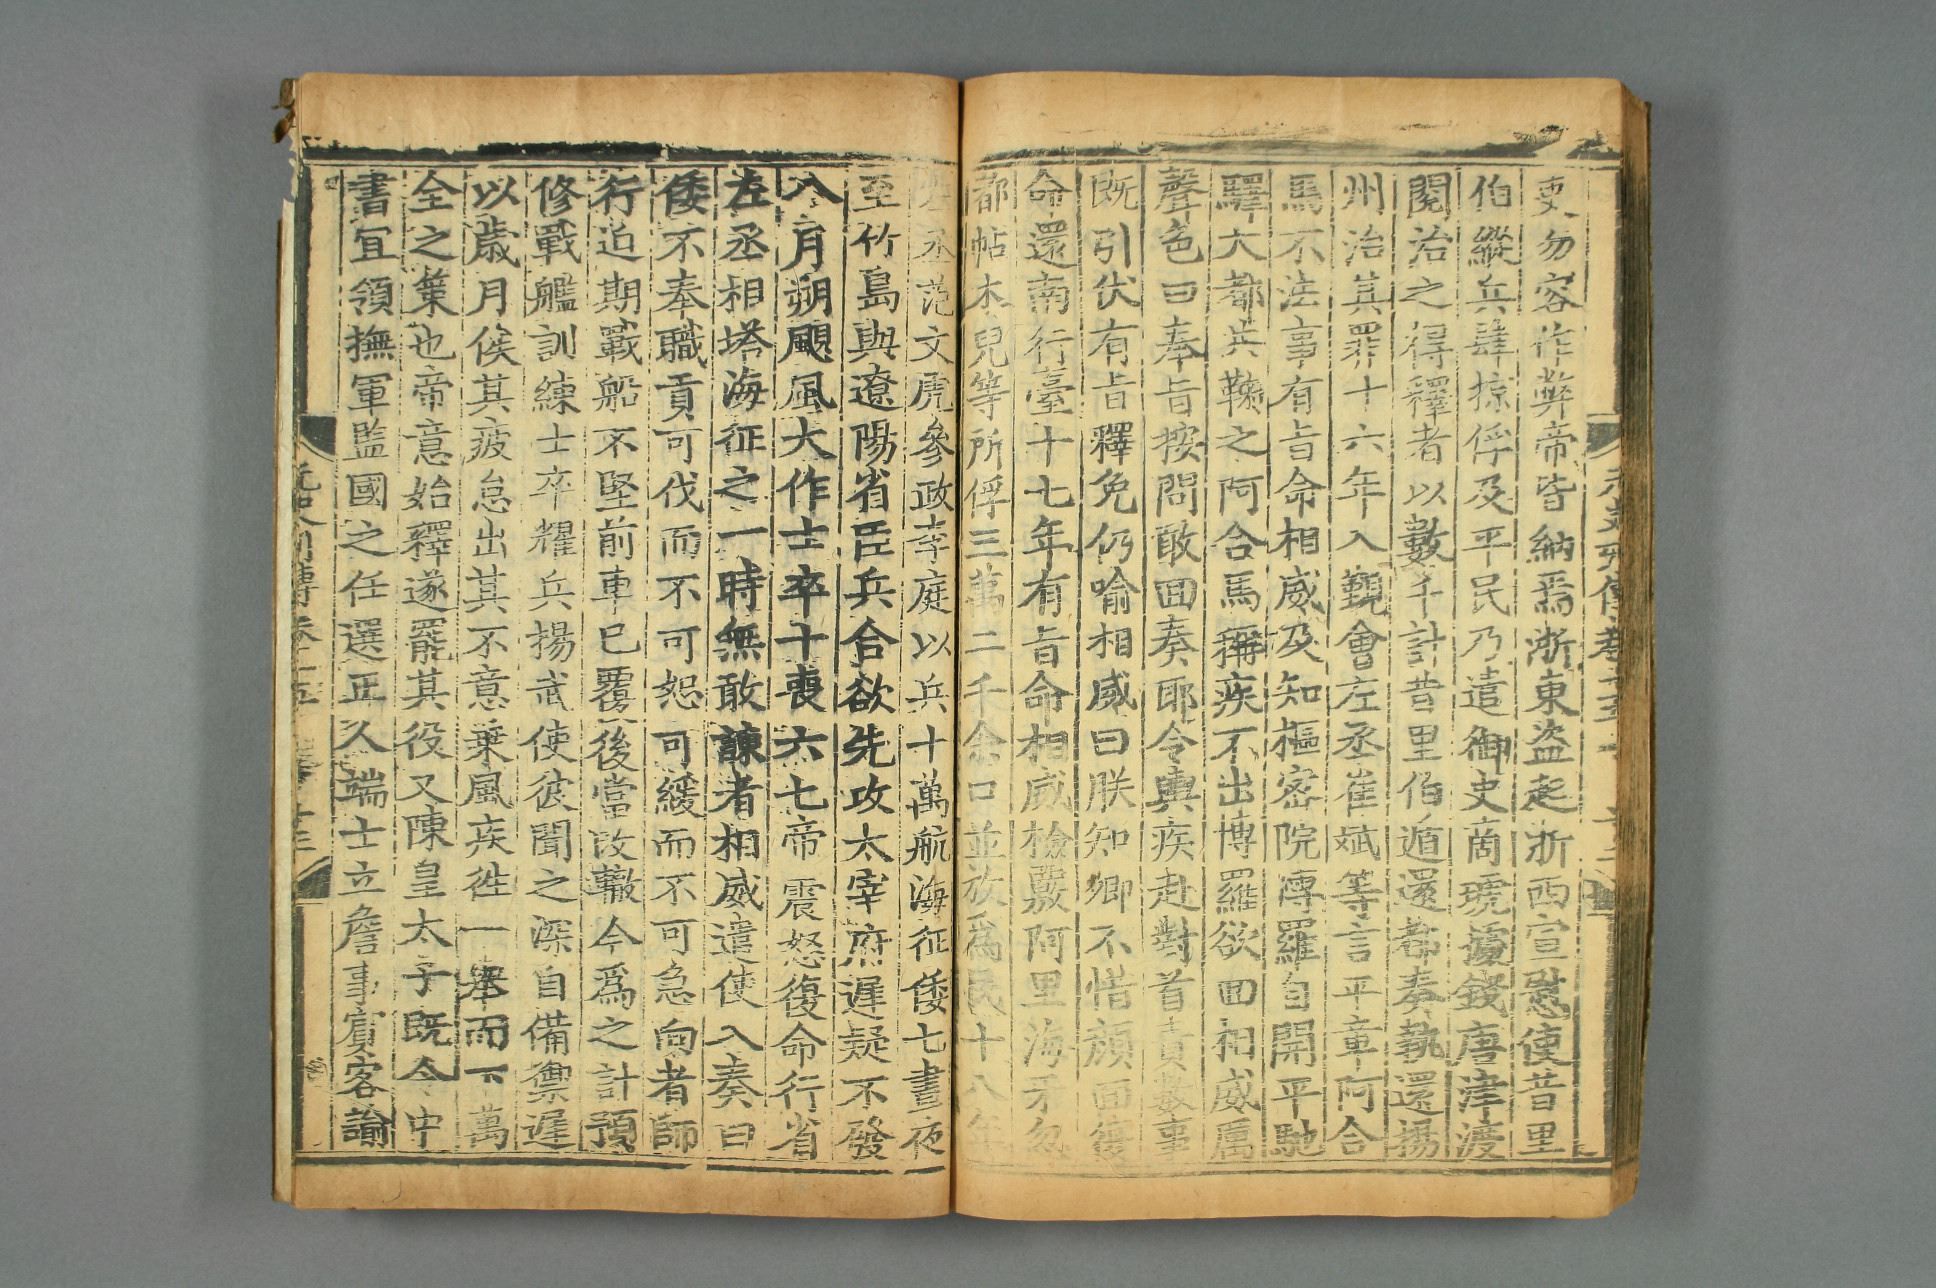 吏勿容作弊帝皆納焉浙東盜起浙西宣慰使昔里
伯縱兵肆掠俘及平民乃遣御史商琥據錢唐津渡
閱治之得釋者以數千計昔里伯遁還都奏執還揚
州治其罪十六年入覲會左丞崔斌等言平章阿合
馬不法事有旨命相威及知樞密院博羅自開平馳
驛大都共鞫之阿合馬稱疾不出博羅欲回相威厲
聲色曰奉旨按問敢回奏耶令輿疾赴對首責數事
既引伏有旨釋免仍喻相威曰朕知卿不惜顏面復
命還南行臺十七年有旨命相威檢覈阿里海牙忽
都帖木兒等所俘三萬二千余口並放爲民十八年
右丞范文虎參政李庭以兵十萬航海征倭七晝夜
至竹島與遼陽省臣兵合欲先攻太宰府遲疑不發
八月朔颶風大作士卒十喪六七帝震怒復命行省
左丞相塔海征之一時無敢諫者相威遣使入奏曰
倭不奉職貢可伐而不可恕可緩而不可急向者師
行迫期戰船不堅前車已覆後當改轍今爲之計預
修戰艦訓練士卒耀兵揚武使彼聞之深自備禦遲
以歲月俟其疲怠出其不意乗風疾徃一舉而下萬
全之策也帝意始釋遂罷其役又陳皇太子既令中
書宜領撫軍監國之任選正久端士立詹事賓客諭
元史列傳卷十五 十三